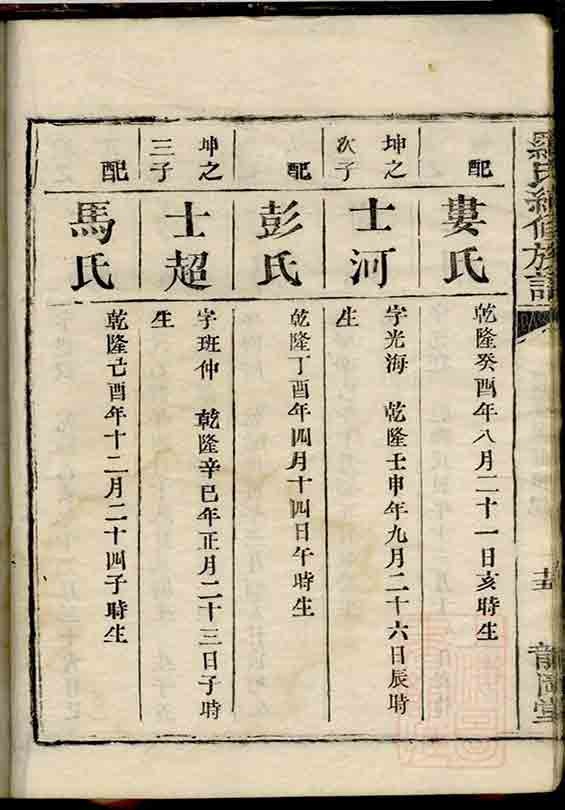 羅氏續修族譜
十五
龍岡堂
配
婁氏
乾隆癸酉年八月二十一日亥時生
坤之次子
士河
字光海 乾隆壬申年九月二十六日辰時
生
配
彭氏
乾隆丁酉年四月十四日午時生
坤之三子
士超
字班仲 乾隆辛巳年正月二十三日子時
生
配
馬氏
乾隆亡酉年十二月二十四子時生